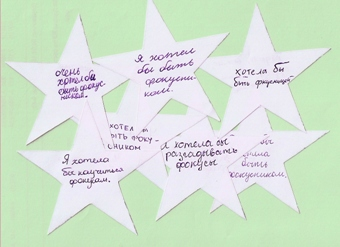 очень
хотел бы
быть фокус-
ником.
Я хотел
бы быть
фокусни-
ком.
хотела бы
быть фокусницей.
ХОТЕЛ
БЫТЬ ФОКУ-
СНИКОМ
Я хотела
бы научиться
фокусам.
Я хотела бы
разгадывать
фокусы
бы
быть
фокусником.